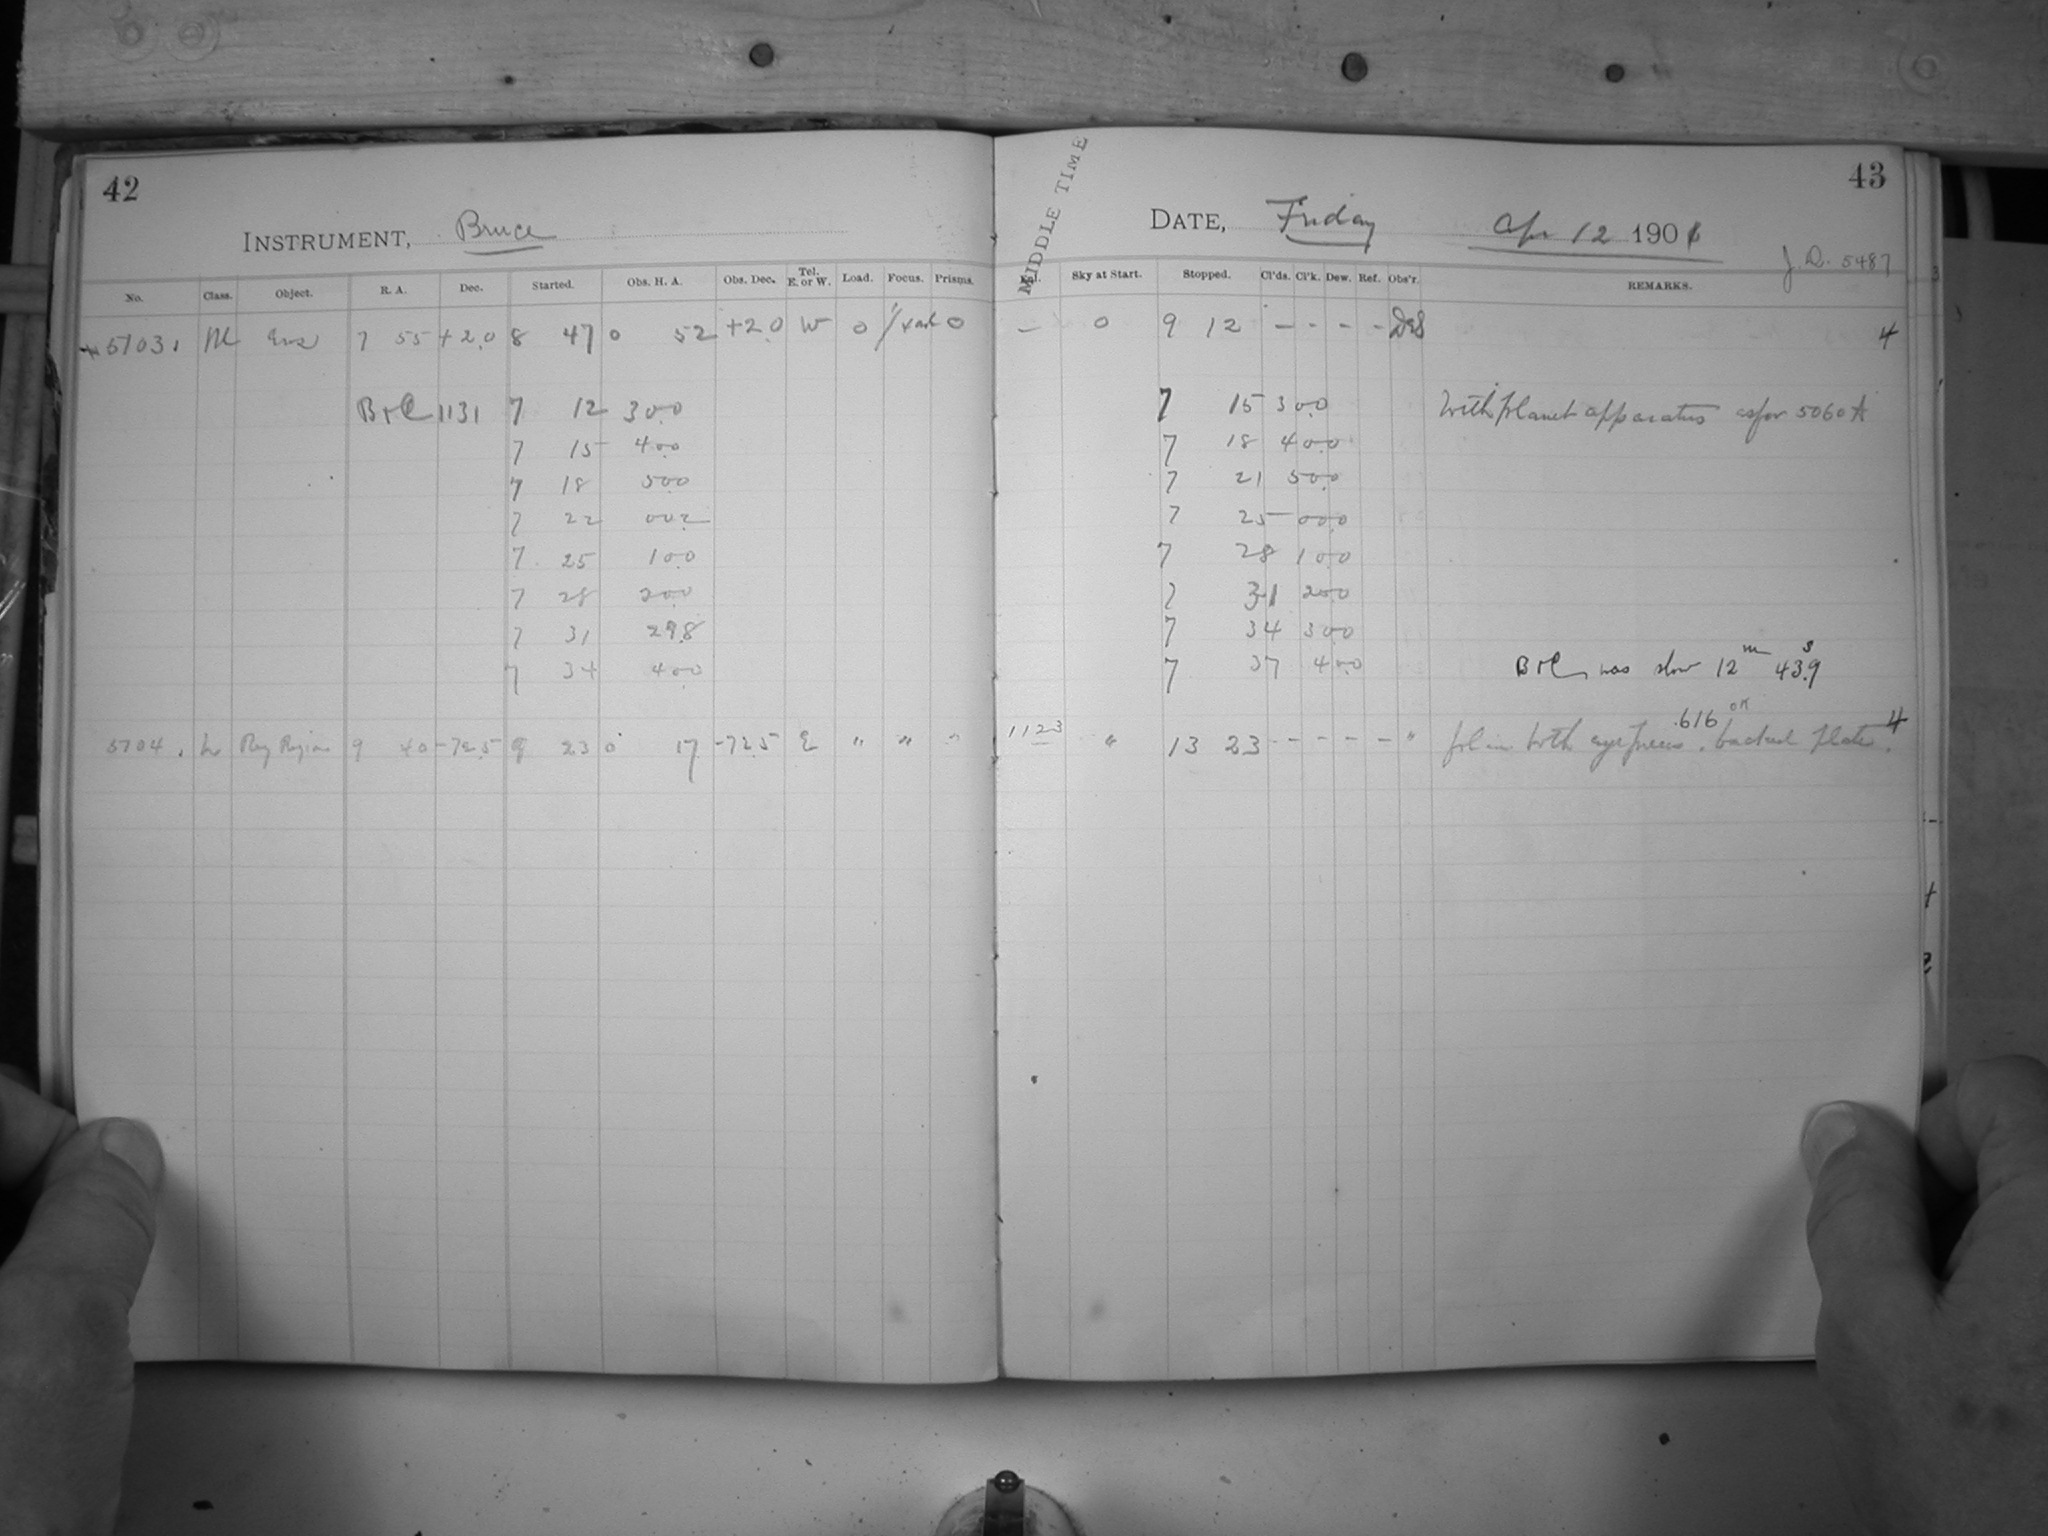 42
INSTRUMENT, Bruce
No. Class. Object. R. A. Dec. Started. Obs. H. A. Obs. Dec. Tel. E. or W. Load. Focus. Prisms.
5703. Eros 7 55 +2.0 8 47 0 52 +2.0 W 0 0
B+C 1131 7 12 30.0
7 15 40.0
7 18 50.0
7 22 00.2
7 25 10.0
7 28 20.0
7 31 29.8
7 34 40.0
5704. L Reg Region 9 40 -72.5 9 23 0 17 -72.5 E " " "
43
MIDDLE TIME
DATE, Friday Apr 12 1901
J. D. 5487
Sky at Start. Stopped. Cl'ds. Cl'k. Dew. Ref. Obs'r. REMARKS.
— 0 9 12 - - - - 4
7 15 30.0 With planet apparatus as for 5060 A
7 18 40.0
7 21 50.0
7 25 00.0
7 28 10.0
7 31 20.0
7 34 30.0
7 37 40.0 B+C was slow 12m 43.9s
1123 " 13 23 - - - - " .616 with eyepiece. backed plate. 4